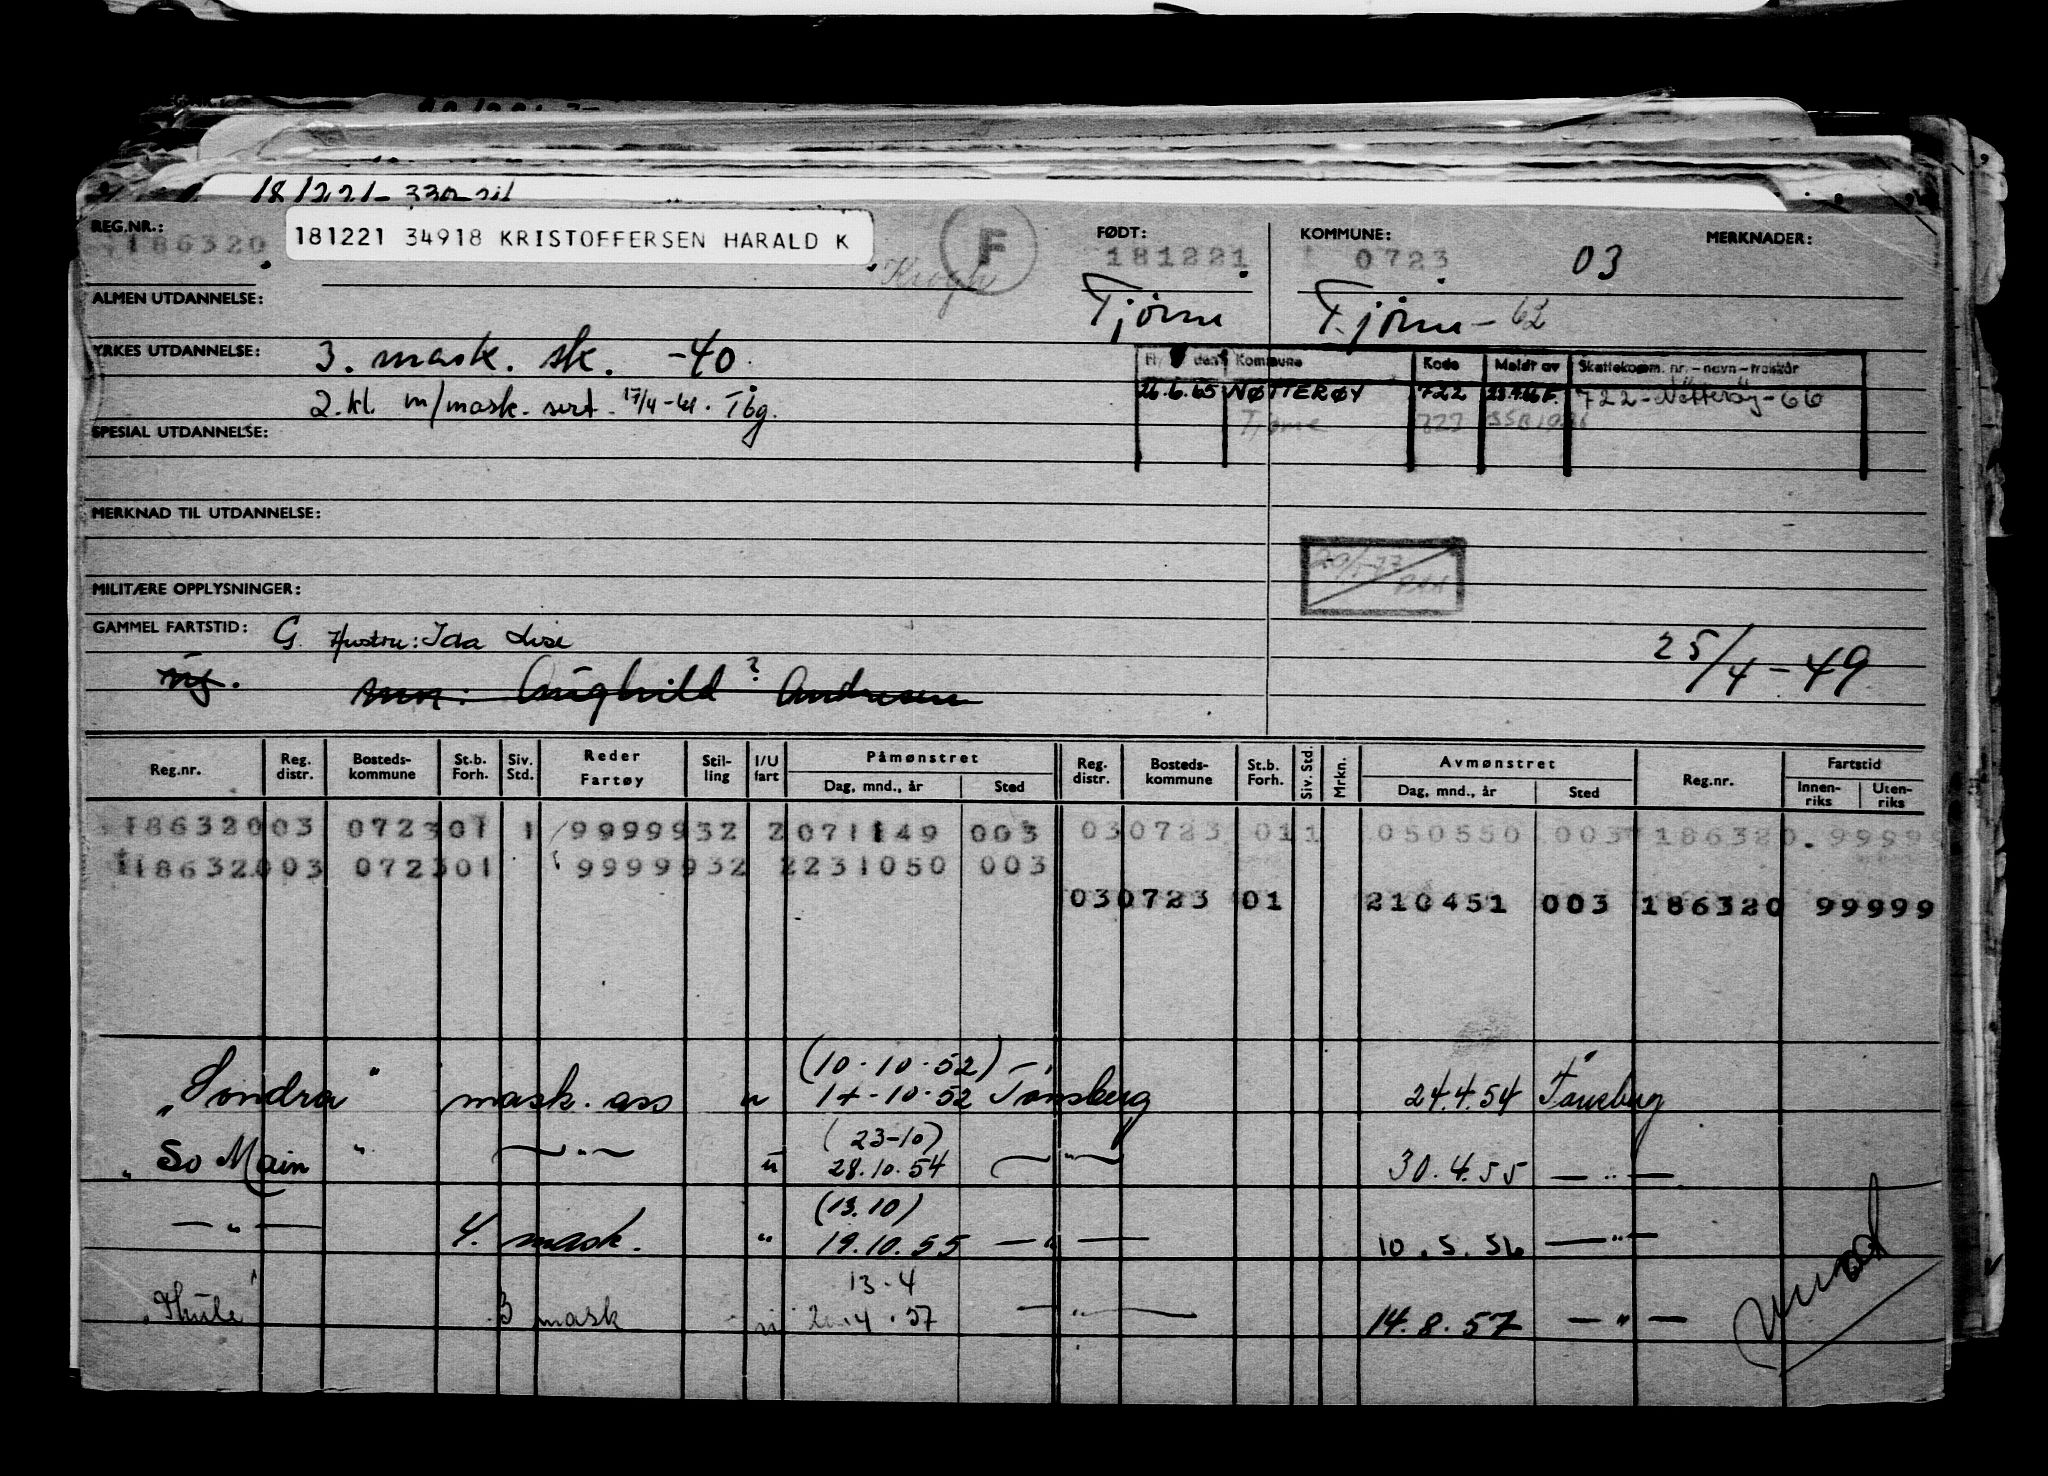 181221-330-
REG.NR.: 181221 34918 KRISTOFFERSEN HARALD K F FØDT: KOMMUNE: MERKNADER:
186320 Krogh 181221 0723 03
ALMEN UTDANNELSE: Tjøme Tjøme - 62
YRKES UTDANNELSE: 3. mask. sk. -40
Kommune Kode Meldt av Skattekomm. nr. - navn -
2. kl. m/mask. sert. 17/4-41. Tbg. 26.6.65 NØTTERØY 722 722 - Nøtterøy - 66
SPESIAL UTDANNELSE: Tjøme 723
MERKNAD TIL UTDANNELSE:
MILITÆRE OPPLYSNINGER:
GAMMEL FARTSTID: G. Hustru: Ida Lise
25/4-49
ug. Aughild ? Andresen
Reg.nr. Reg. distr. Bosteds-kommune St.b. Forh. Siv. Std. Reder Fartøy Stil-ling I/U fart Påmønstret Dag, mnd., år Sted Reg. distr. Bosteds-kommune St.b. Forh. Siv. Std. Mrkn. Avmønstret Dag, mnd., år Sted Reg.nr. Fartstid Innen-riks Uten-riks
186320 03 0723 01 1 9999932 2 071149 003 03 0723 01 1 050550 003 186320 99999
186320 03 0723 01 9999932 2 231050 003
03 0723 01 210451 003 186320 99999
(10-10-52)
"Sondra" mask. ass u 14-10-52 Tønsberg 24.4.54 Tønsberg
(23-10)
"So Main" —"— u 28.10.54 —"— 30.4.55 —"—
(13.10)
—"— 4. mask. " 19.10.55 —"— 10.5.56 —"—
13-4
"Thule" 3 mask u 4.57 —"— 14.8.57 —"—